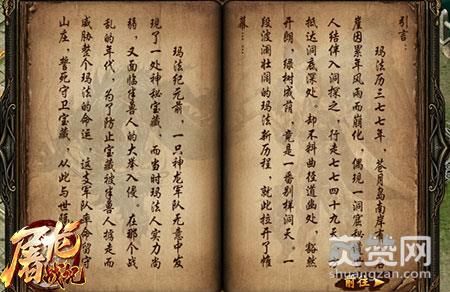 引言
玛法历三七七年,苍月岛南岸有
崖因累年风雨而崩化,偶现一洞窟秘道
人结伴入洞探之,行走七七四十九天
抵达洞底深处。却不料曲径道幽处,豁然
开朗,绿树成荫,竟是一番别样洞天。一
段波澜壮阔的玛法新历程,就此拉开了帷
幕……
玛法纪元前,一只神龙军队无意中发
现了一处神秘宝藏。而当时玛法人实力尚
弱,又面临半兽人的大举入侵,在那个战
乱的年代,为了防止宝藏被半兽人掳走而
威胁整个玛法的命运,这支军队奉命留守
山庄,誓死守卫宝藏,从此与世
屠龙战纪
前往
爽赞网
shuangzan.com